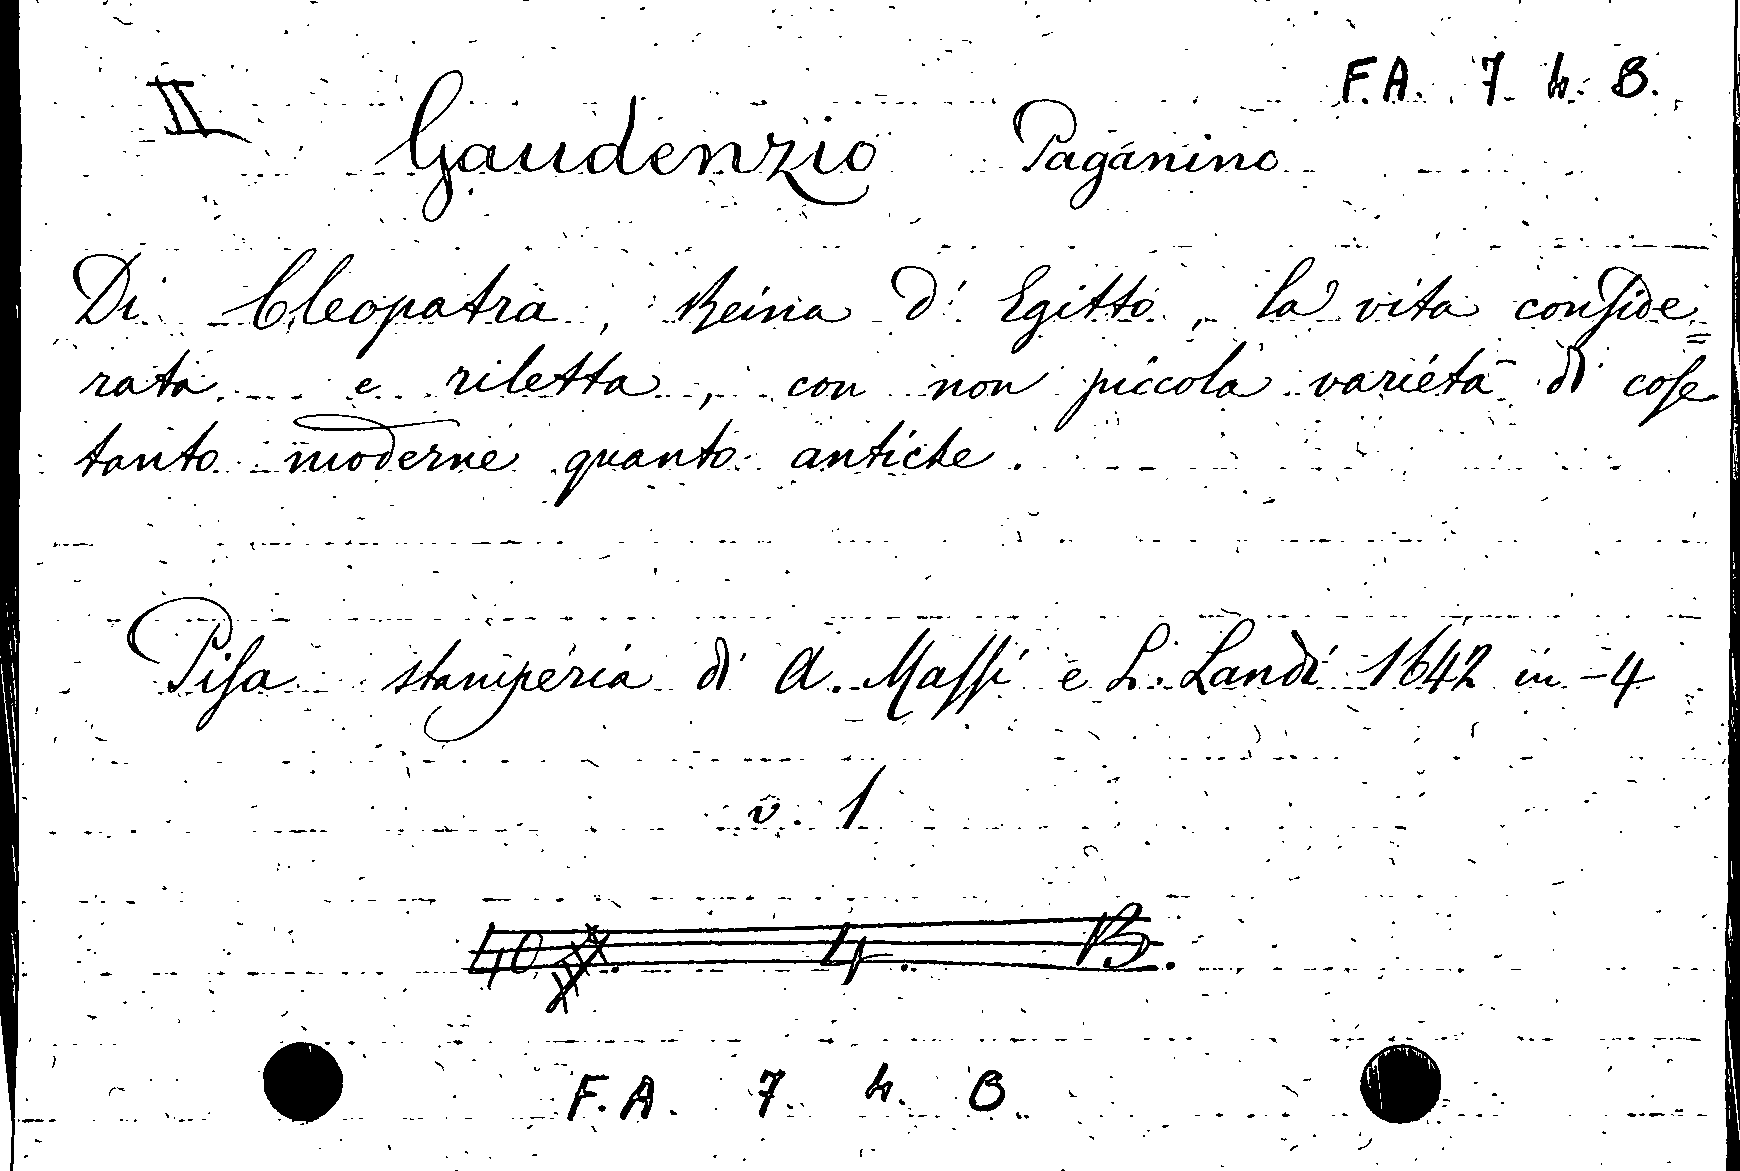 F.A. 7 h. B.
II Gaudenzio Paganino
Di Cleopatra, Reina d'Egitto, la vita conſide=
rata e riletta, con non piccola varietà di coſe
tanto moderne quanto antiche.
Piſa stamperia di A. Maſſi e L. Landi 1642 in-4
v. 1
4. B.
F.A. 7. h. B.